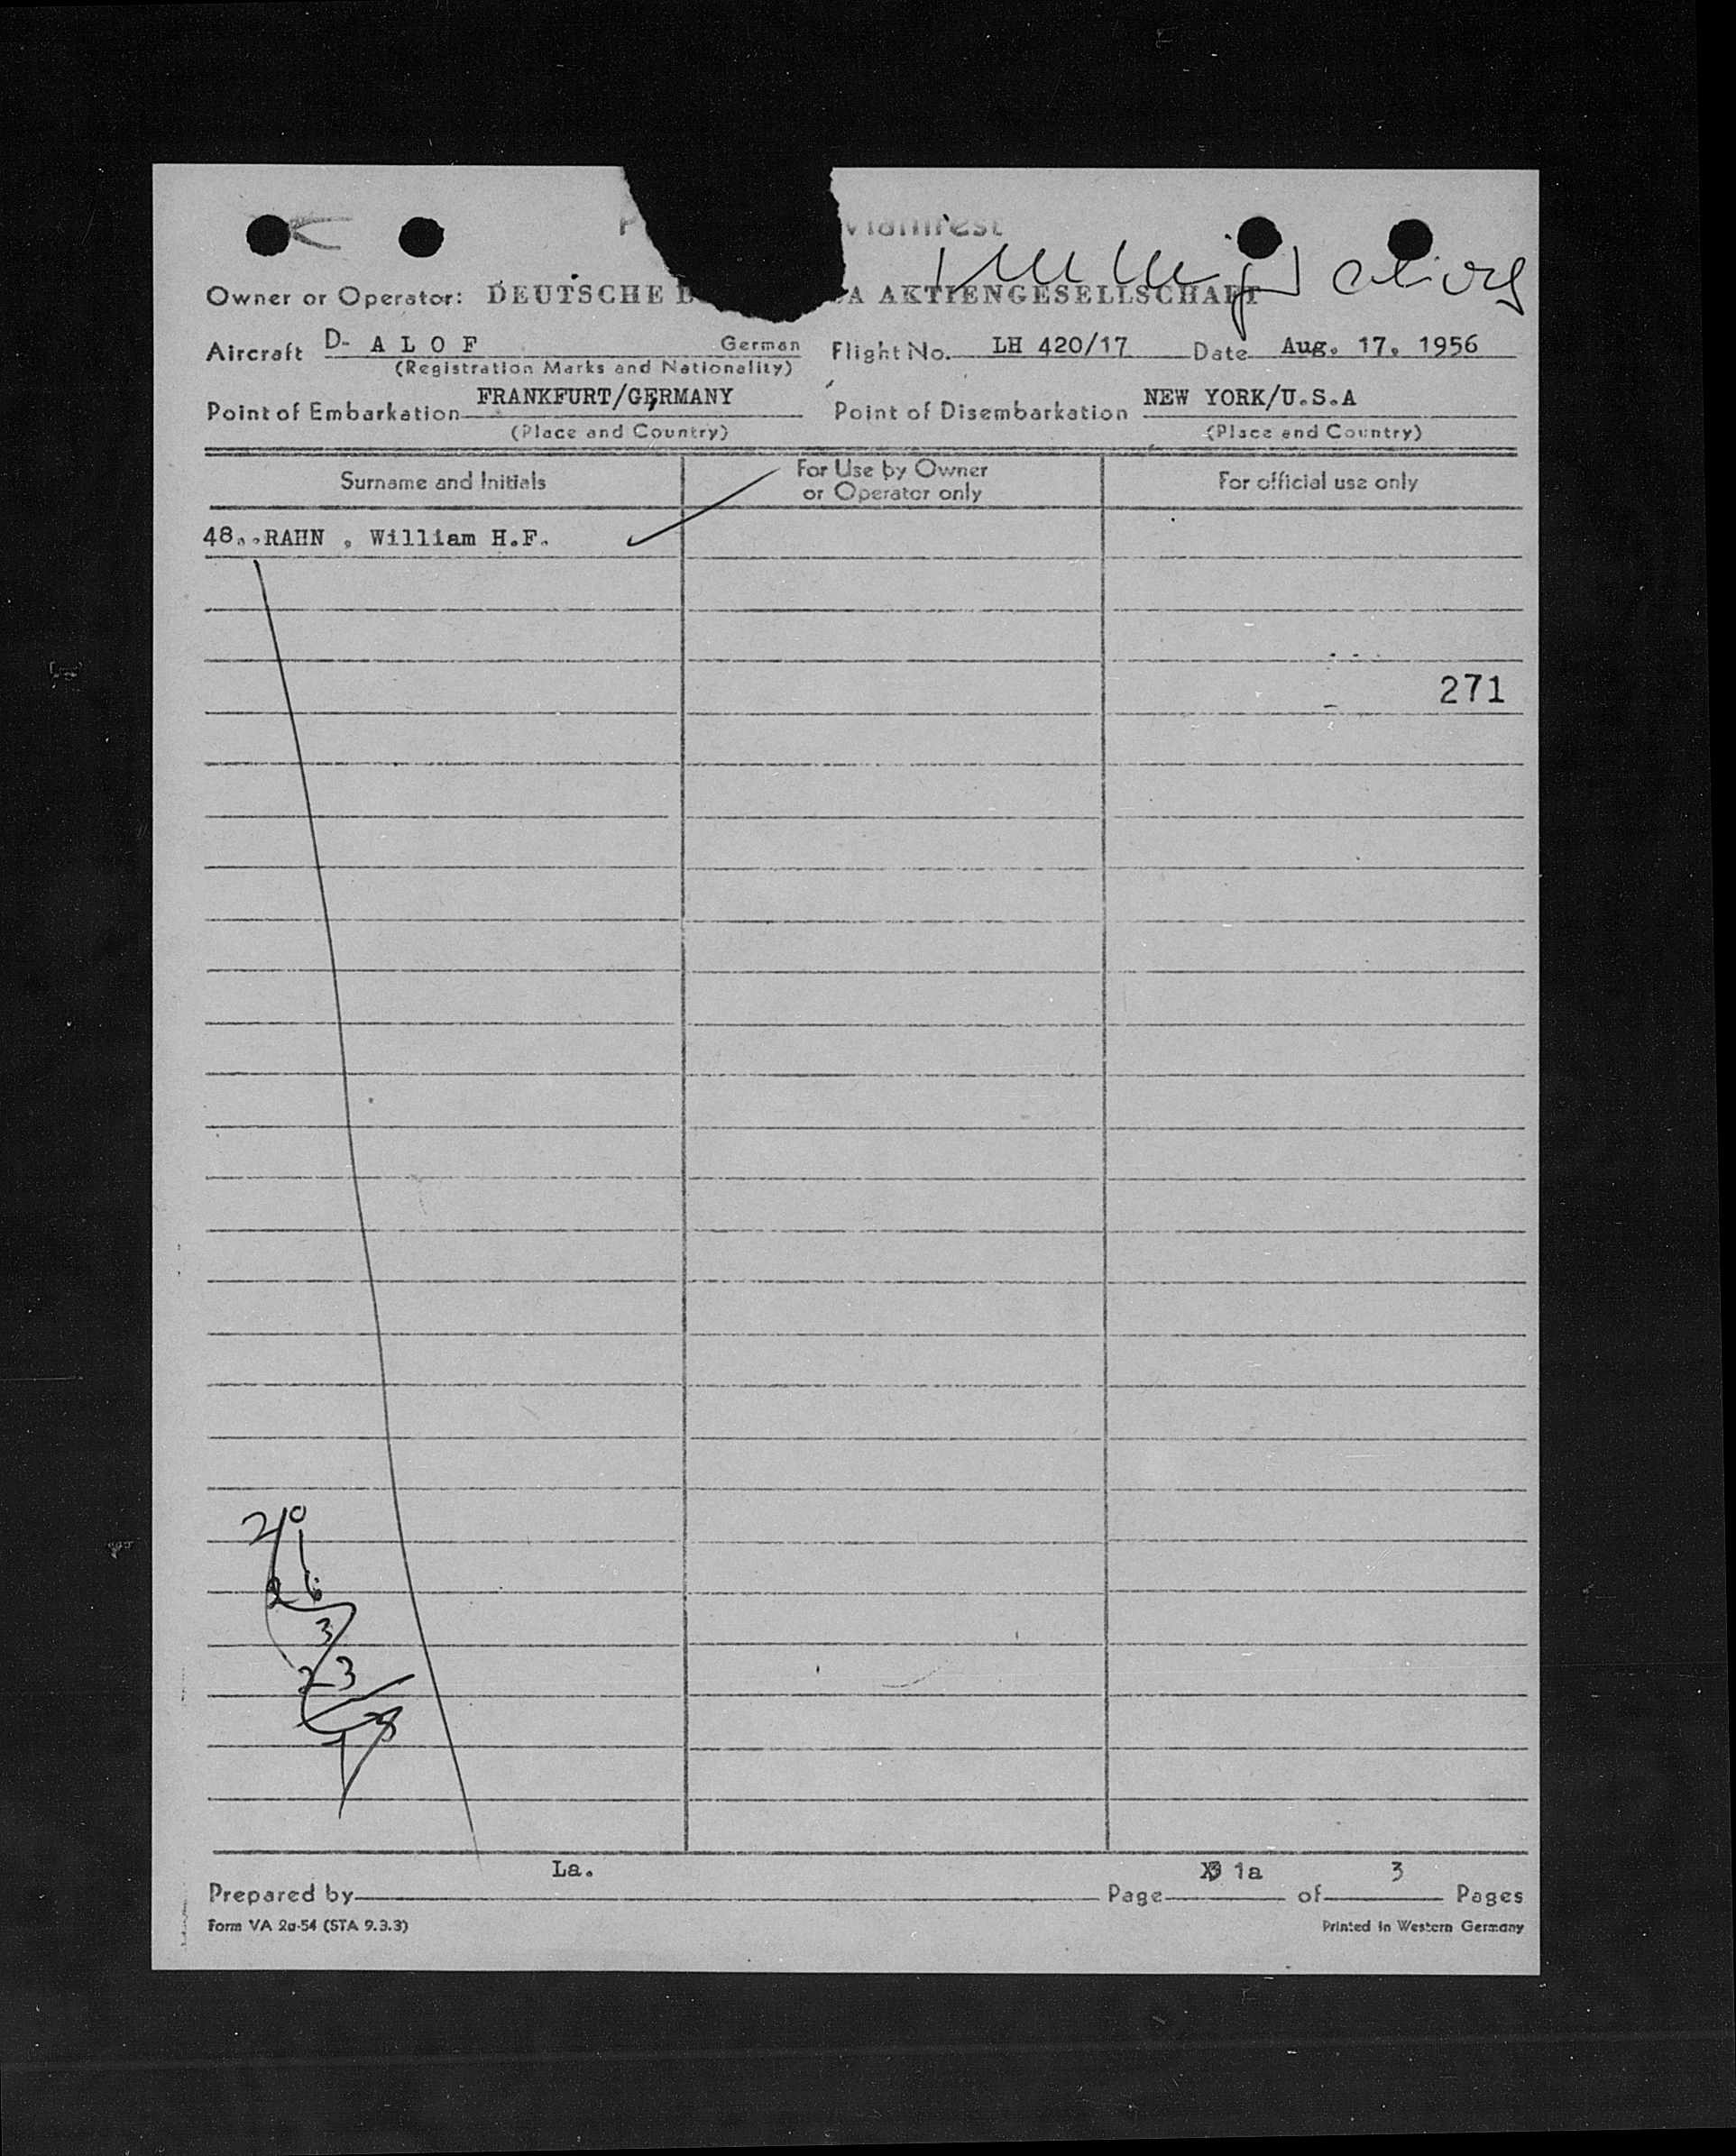 Manifest
Owner or Operator: DEUTSCHE AKTIENGESELLSCHAFT
Immigration
Aircraft D- A L O F German Flight No. LH 420/17 Date Aug. 17. 1956
(Registration Marks and Nationality)
Point of Embarkation FRANKFURT/GERMANY Point of Disembarkation NEW YORK/U.S.A
(Place and Country) (Place and Country)
Surname and Initials For Use by Owner or Operator only For official use only
48..RAHN , William H.F.
271
20
26
3
23
La. 1a 3
Prepared by Page of Pages
Form VA 2a-54 (STA 9.3.3) Printed in Western Germany